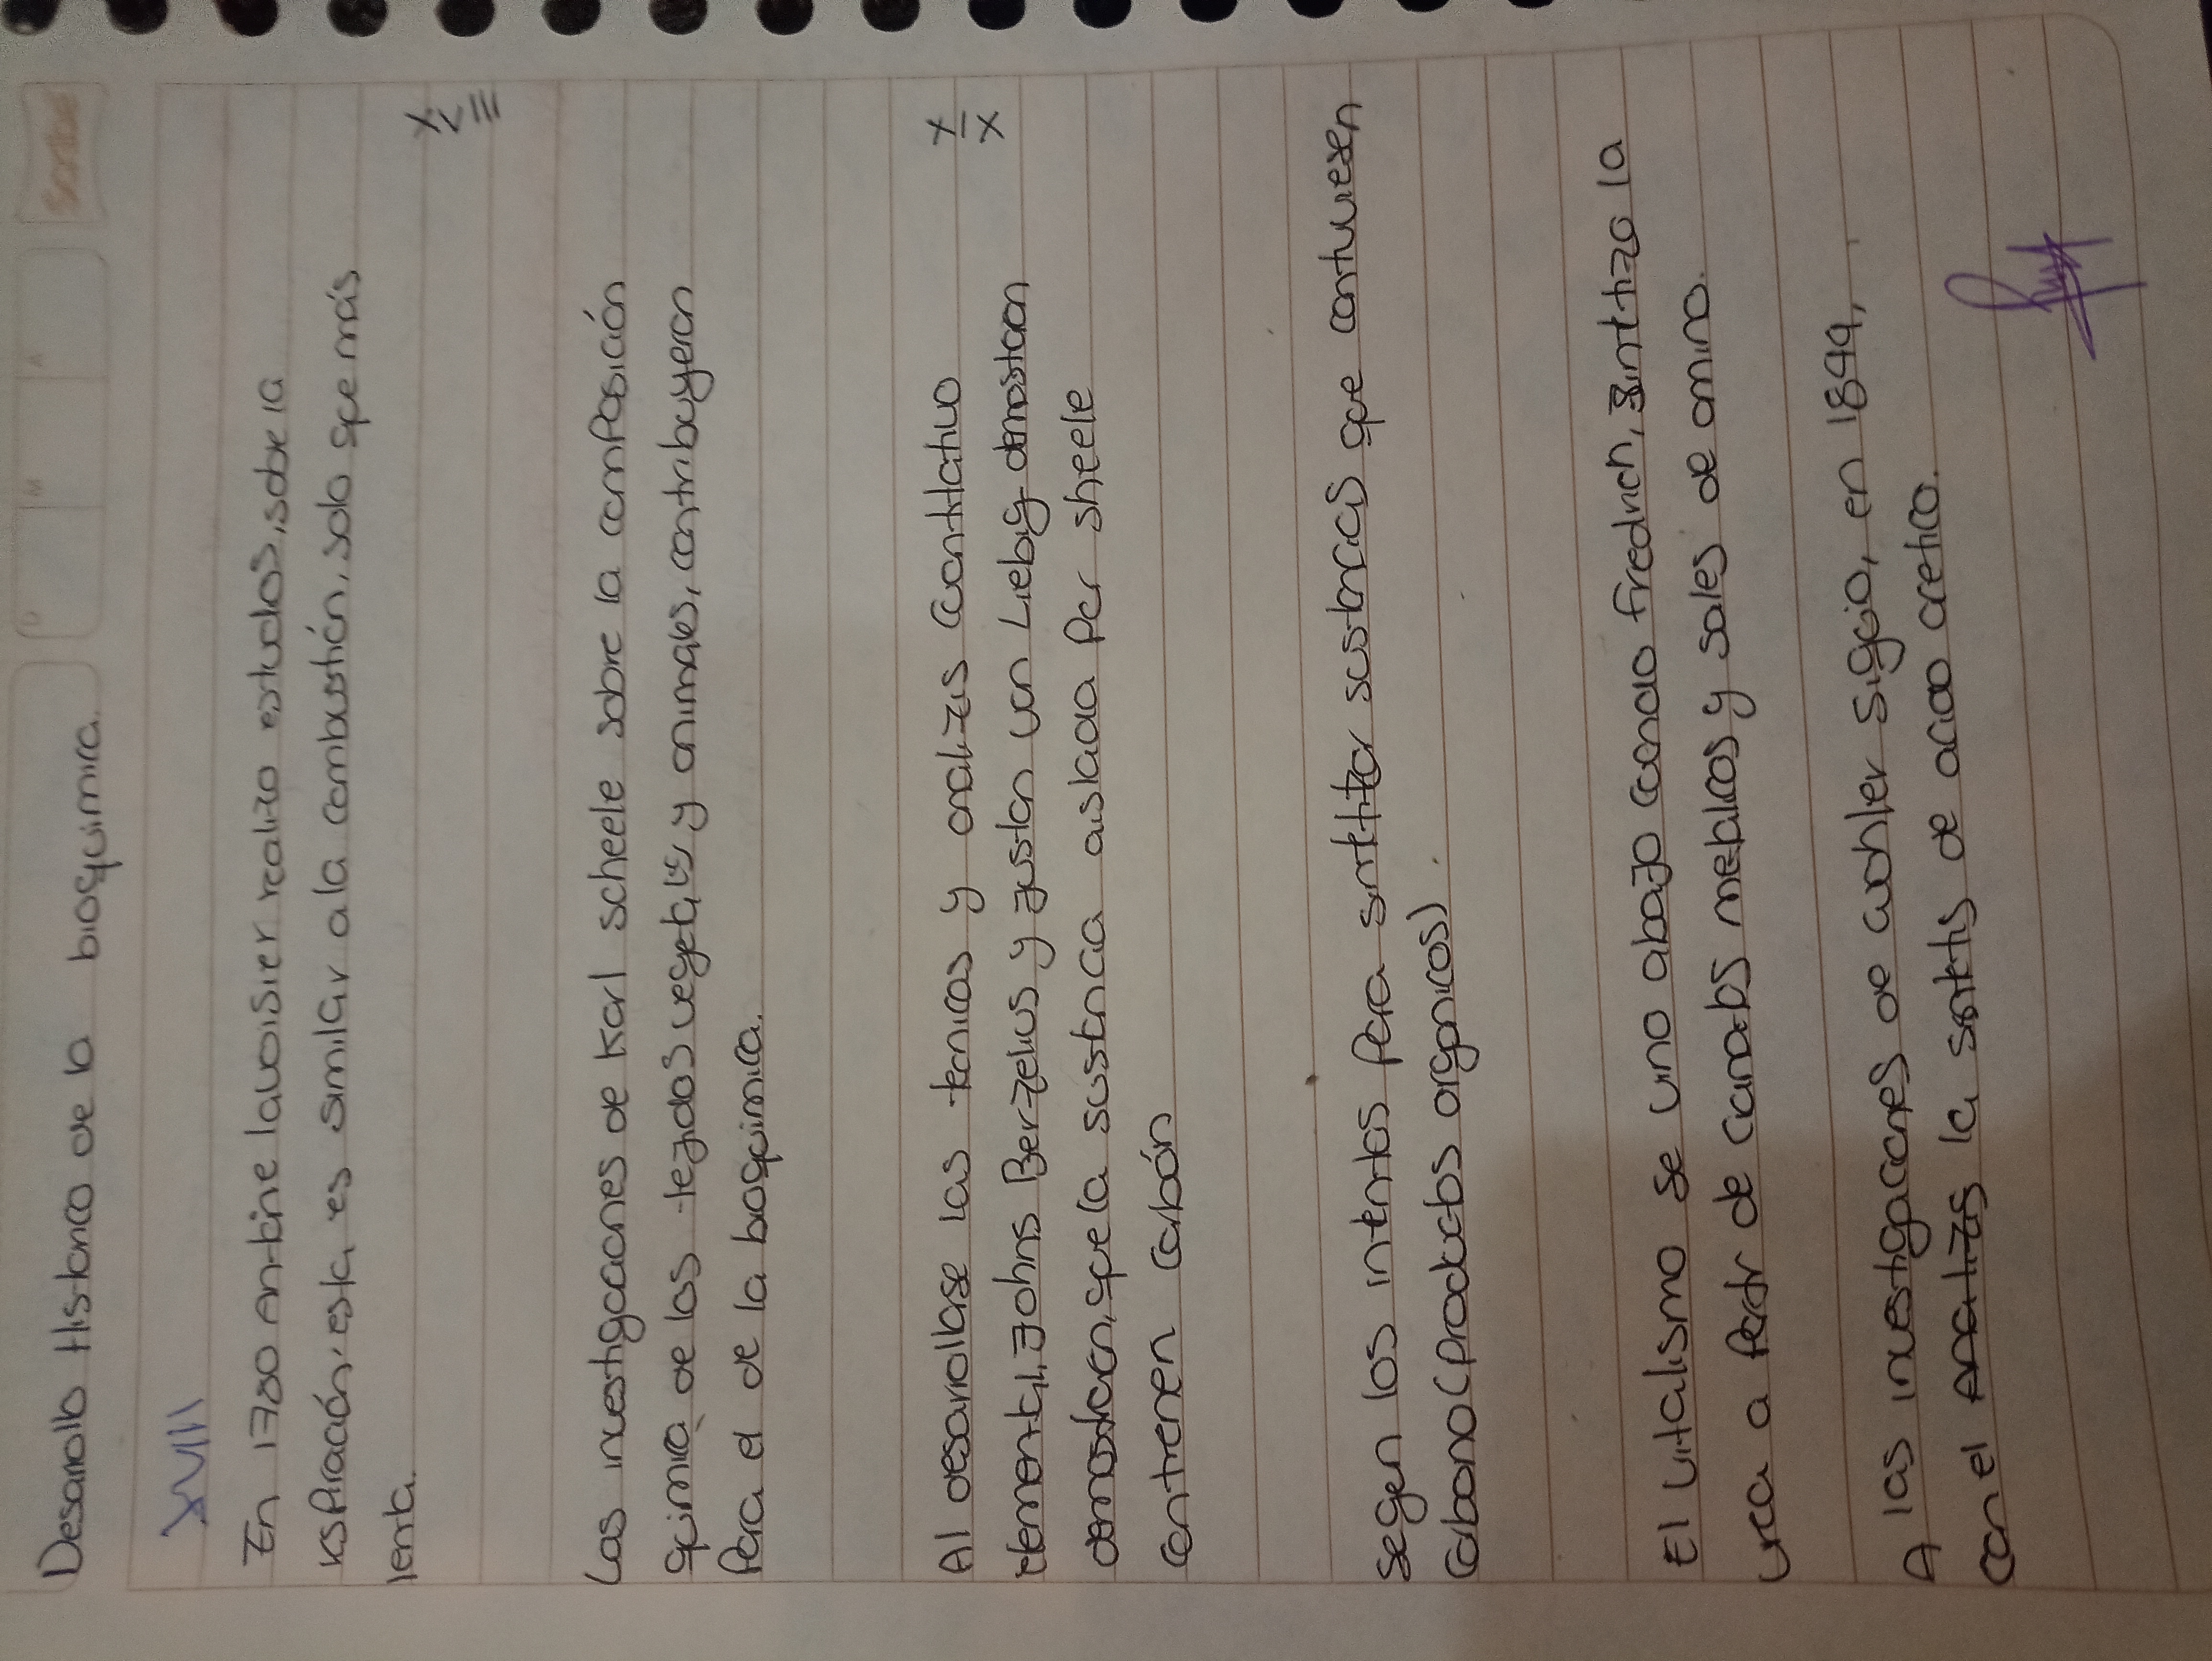 Desarrollo Historico de la bioquimica.
XVIII
En 1780 Antoine lavoisier realizo estudios, sobre la
respiración, esta, es similar a la combustión, solo que más
lenta.
XVIII
Las investigaciones de Karl scheele sobre la composición
quimica de los tejidos vegetales y animales, contribuyeron
Para el de la bioquimica.
XIX
Al desarrollarse las tecnicas y analizis cantitativo
elemental, Johns Berzelius y juston von Liebig demostraron
demostraron, que la sustancia aislada Por sheele
contienen carbón
segen los intentos Para sintetizar sustancias que contuviesen
carbono (productos organicos)
El vitalismo se vino abajo cuando friedrich, sintetizo la
urea a Partir de cianatos metalicos y sales de amino.
A las investigaciones de wohler siguio, en 1844,
con el analizis la sintesis de acido acetico.